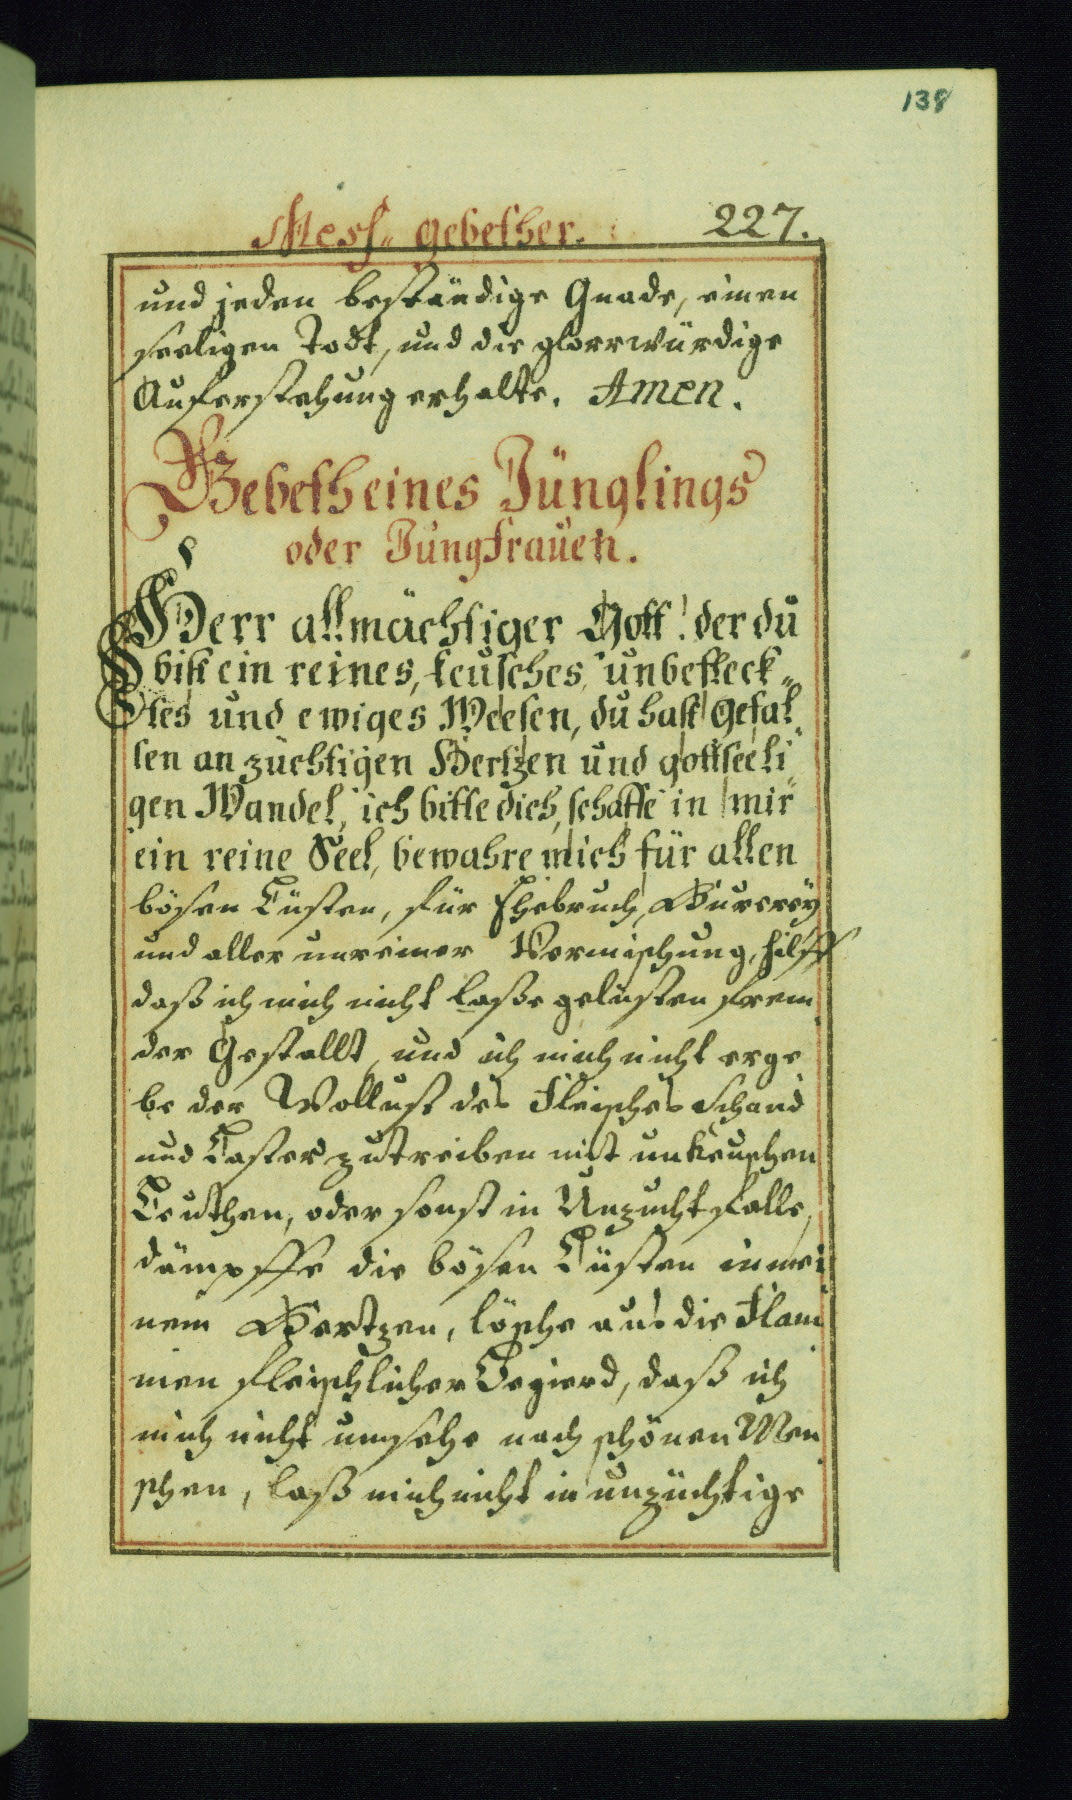 138
Mess- gebether. 227.
und jeden beständige Gnade, einen
seeligen Todt, und die glorrwürdige
Auferstehung erhalte. Amen.
Gebeth eines Jünglings
oder Jungfrauen.
Herr allmächtiger Gott! der du
bist ein reines, keusches, unbefleck-
tes und ewiges Weesen, du hast gefal-
len an züchtigen Hertzen und gottseeli-
gen Wandel, ich bitte dich, schaffe in mir
ein reine Seel, bewahre mich für allen
bösen Lüsten, für Ehebruch, Hurerey
und aller unreiner Vermischung, hilff
daß ich mich nicht laße gelusten frem-
der Gestallt, und ich mich nicht erge-
be der Wollust des Fleisches Schand
und Laster zutreiben mit unkeuschen
Leuthen, oder sonst in Unzucht falle,
dämpffe die bösen Lüsten in mei-
nem Hertzen, lösche aus die Flam-
men fleischlicher Begierd, daß ich
mich nicht umsehe nach schönen Men-
schen, laß mich nicht in unzüchtige